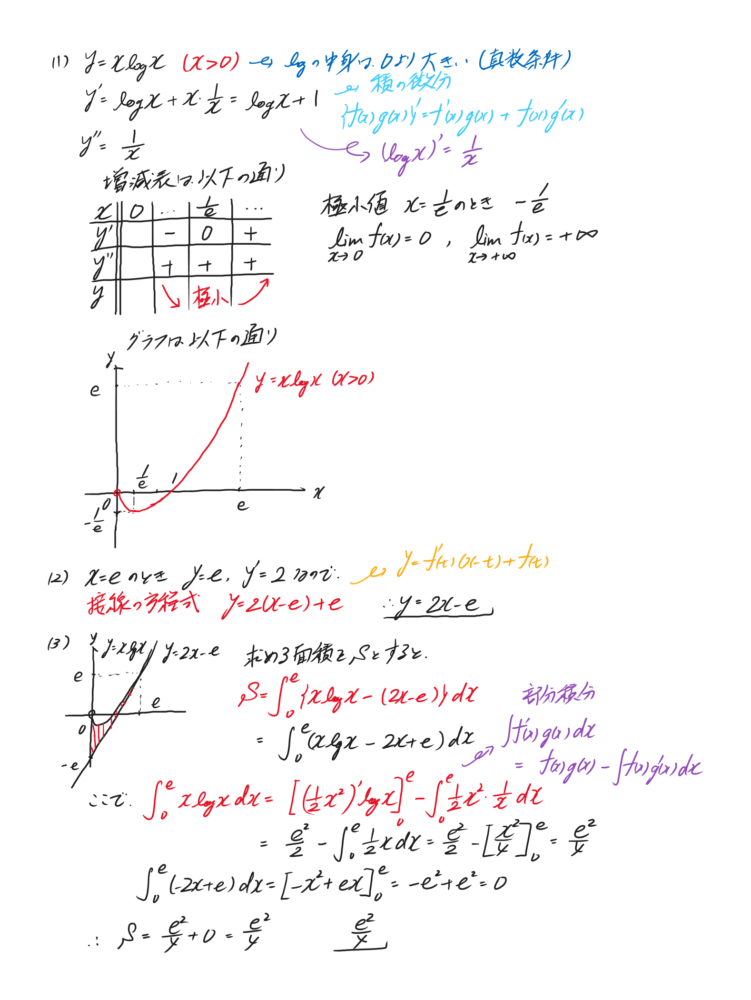 (1) y=xlogx (x>0) → logの中身は0より大きい(真数条件)
y'=logx+x・1/x=logx+1 → 積の微分
{f(x)g(x)}'=f'(x)g(x)+f(x)g'(x)
y''=1/x → (logx)'=1/x
増減表は以下の通り
x 0 … 1/e …
y' - 0 +
y'' + + +
y ↘ 極小 ↗
極小値 x=1/eのとき -1/e
lim x→0 f(x)=0, lim x→+∞ f(x)=+∞
グラフは以下の通り
y
e
y=xlogx (x>0)
1/e 1
0 x
-1/e e
(2) x=eのとき y=e, y'=2なので → y=f'(t)(x-t)+f(t)
接線の方程式 y=2(x-e)+e ∴y=2x-e
(3) y y=xlogx y=2x-e
e
0 e
-e
求める面積をSとすると
S=∫₀^e{xlogx-(2x-e)}dx
=∫₀^e(xlogx-2x+e)dx
部分積分
∫f'(x)g(x)dx
=f(x)g(x)-∫f(x)g'(x)dx
ここで ∫₀^e xlogx dx=[(1/2x²)'logx]₀^e-∫₀^e 1/2x²・1/x dx
=e²/2-∫₀^e 1/2xdx=e²/2-[x²/4]₀^e=e²/4
∫₀^e(-2x+e)dx=[-x²+ex]₀^e=-e²+e²=0
∴ S=e²/4+0=e²/4 e²/4